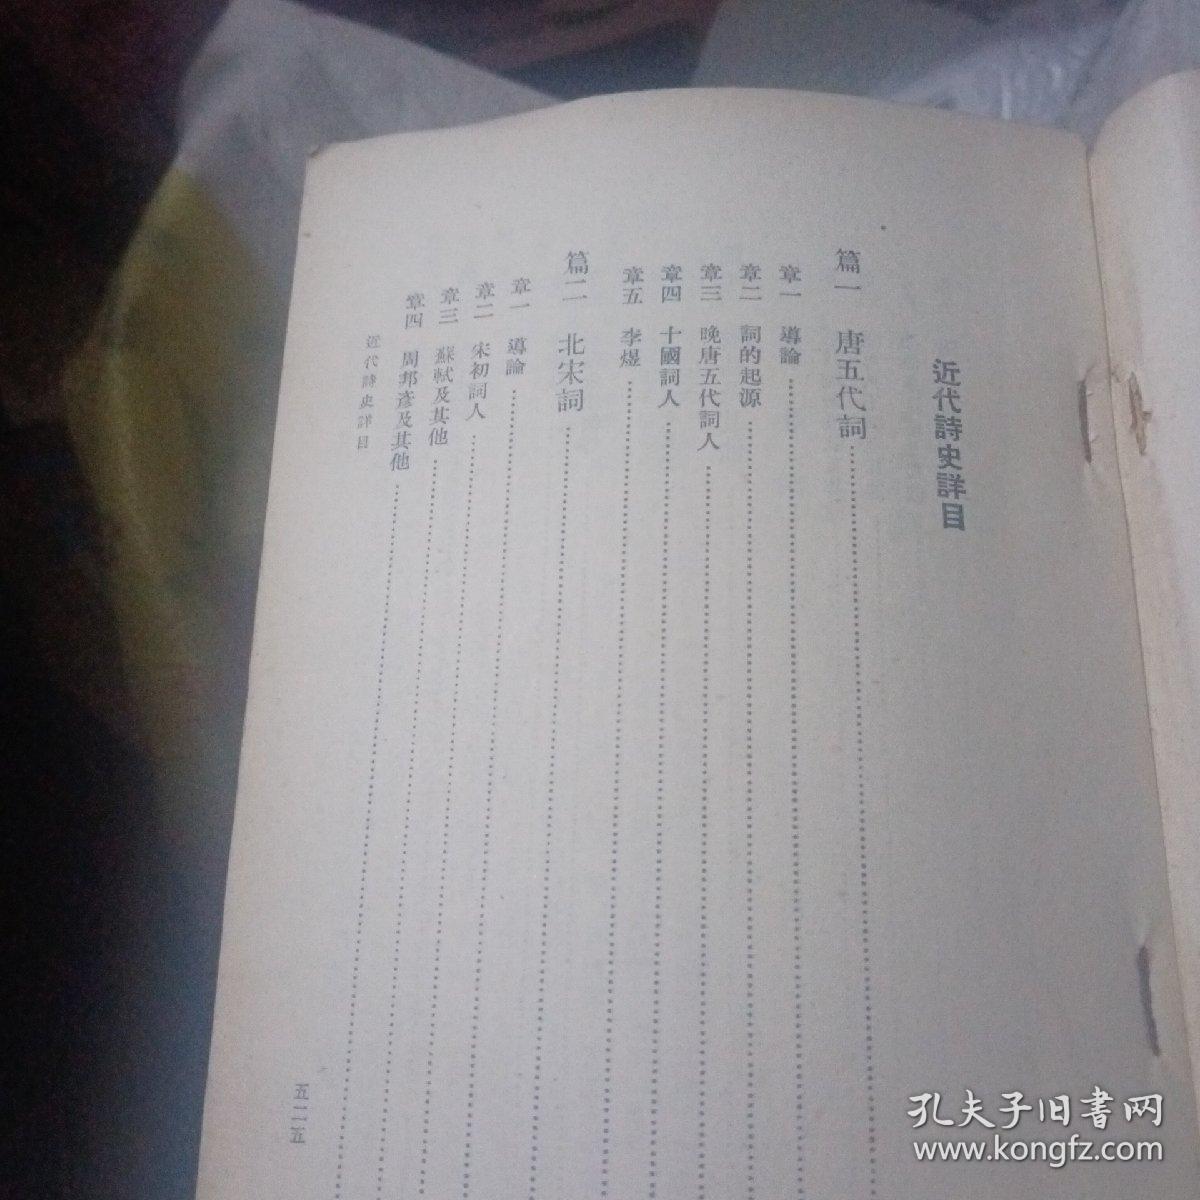 近代詩史詳目
篇一 唐五代詞
章一 導論
章二 詞的起源
章三 晚唐五代詞人
章四 十國詞人
章五 李煜
篇二 北宋詞
章一 導論
章二 宋初詞人
章三 蘇軾及其他
章四 周邦彥及其他
近代詩史詳目
五二五
孔夫子旧书网
www.kongfz.com